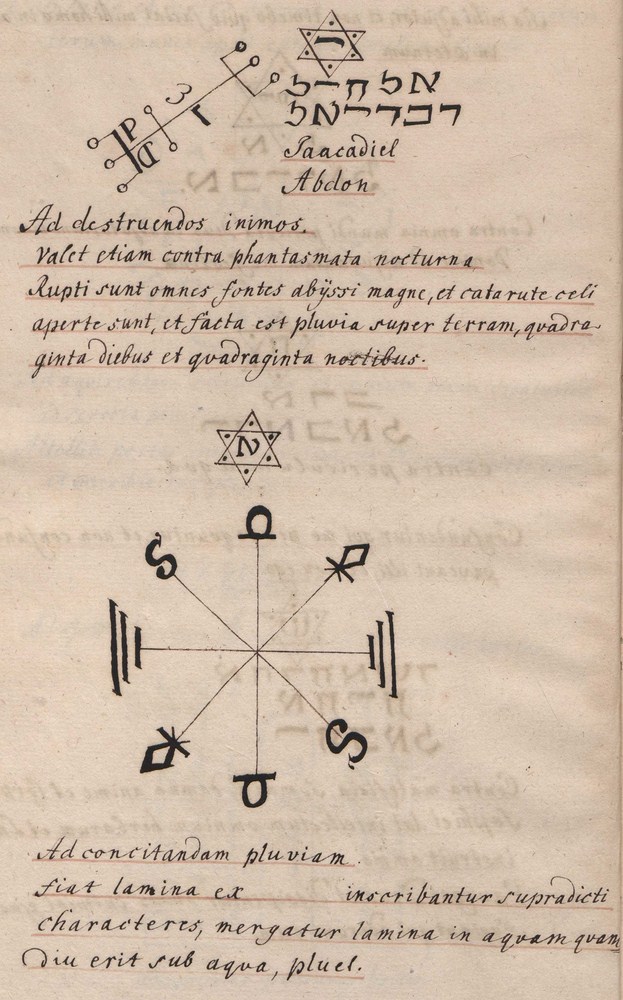 אל
Jaacadiel
Abdon
Ad destruendos inimos.
Valet etiam contra phantasmata nocturna
Rupti sunt omnes fontes abÿssi magne, et catarute celi
aperte sunt, et facta est pluvia super terram, quadra-
ginta diebus et quadraginta noctibus.
Ad concitandam pluviam.
fiat lamina ex inscribantur supradicti
characteres, mergatur lamina in aquam quam
diu erit sub aqua, pluet.